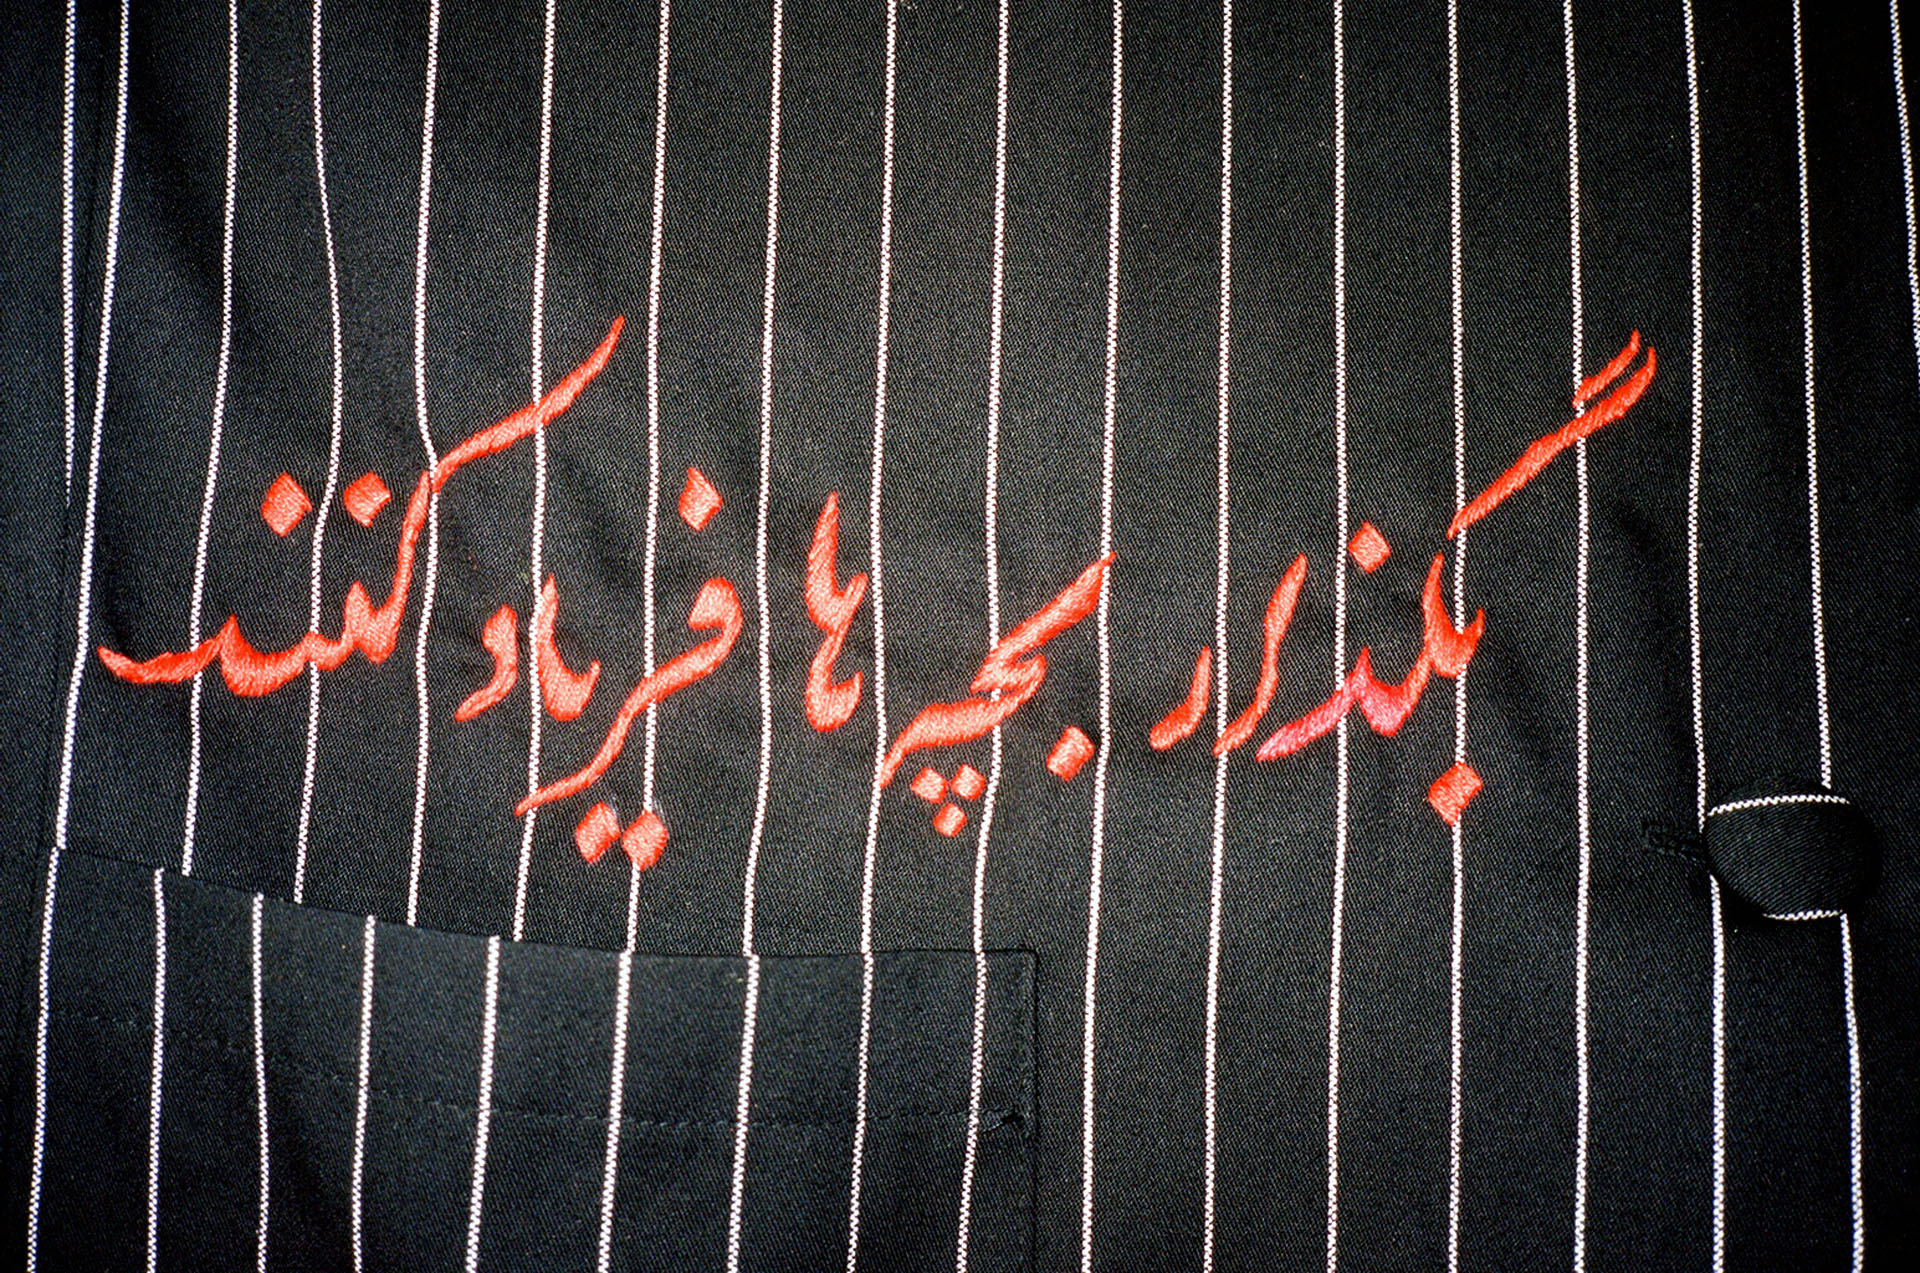 بگذار بچه ها فریاد کنند